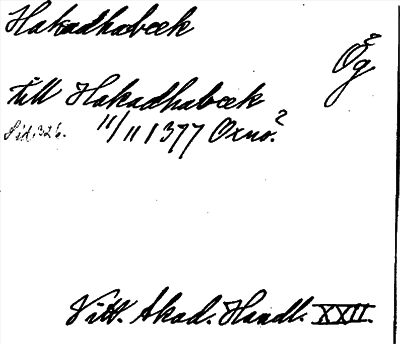 Hakadhabæk
Ög
till Hakadhabæk
Sid. 326. 11/11 1377 Oxno.?
Vitt. Akad. Handl. XXII.